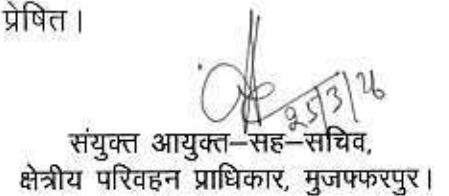 प्रेषित।
25/3/26
संयुक्त आयुक्त–सह–सचिव,
क्षेत्रीय परिवहन प्राधिकार, मुजफ्फरपुर।